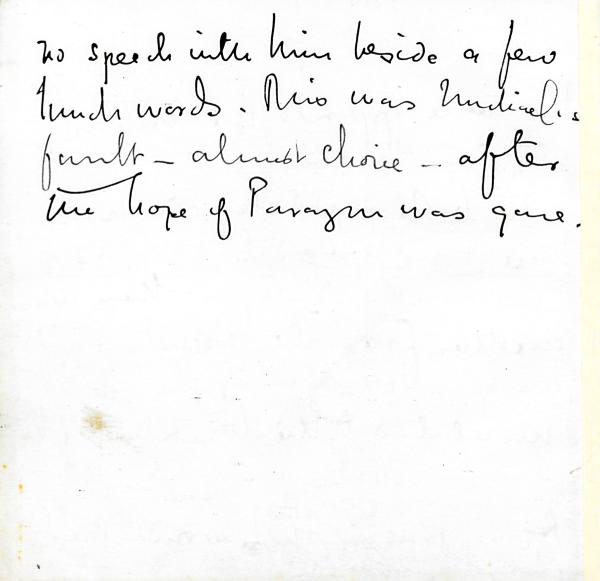 no speech with him beside a few
words. This was Michael's
fault – almost choice – after
the hope of Paragon was gone.